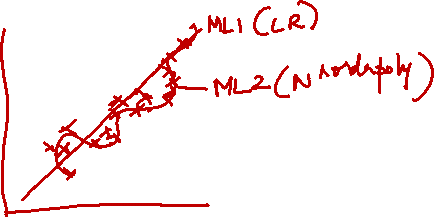 ML1 (LR)
ML2 (Nth order poly)